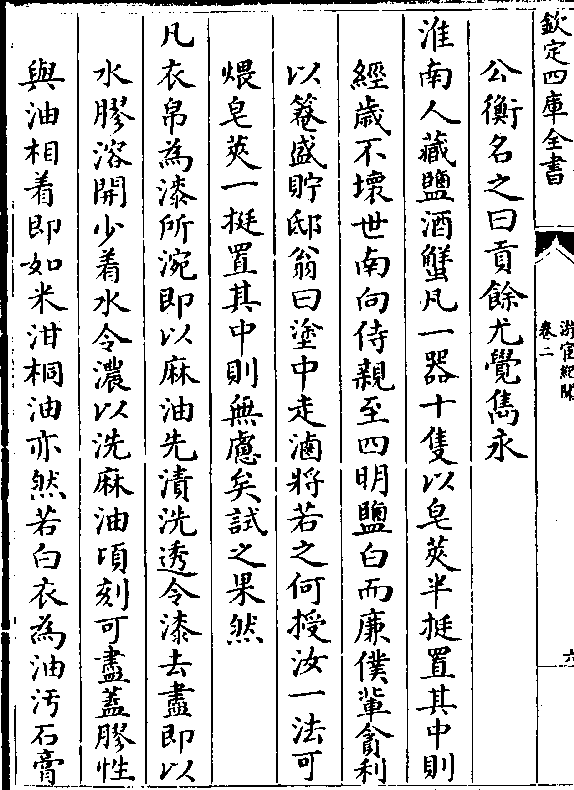 欽定四庫全書
游宦紀聞
卷二
六
公衡名之曰貢餘尤覺雋永
淮南人藏鹽酒蟹凡一器十隻以皂莢半挺置其中則
經歲不壞世南向侍親至四明鹽白而廉僕輩貪利
以篭盛貯邸翁曰塗中走滷將若之何授汝一法可
煨皂莢一挺置其中則無慮矣試之果然
凡衣帛為漆所涴即以麻油先漬洗透令漆去盡即以
水膠溶開少着水令濃以洗麻油頃刻可盡蓋膠性
與油相着即如米泔桐油亦然若白衣為油汚石膏